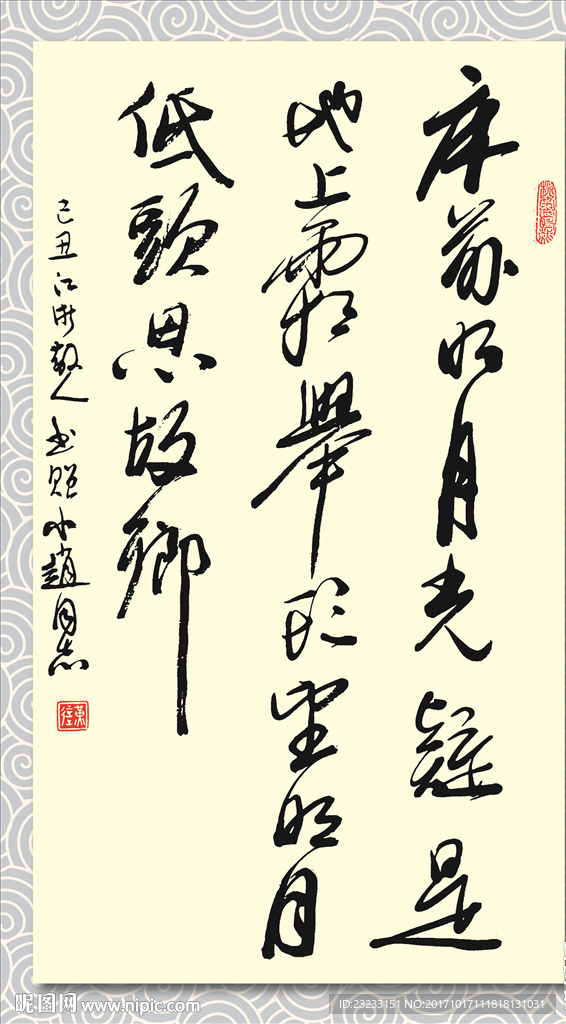 床前明月光疑是
地上霜舉頭望明月
低頭思故鄉
己丑江浙散人书贈小趙同志
昵图网 www.nipic.com
ID:23233151 NO:20171017111818131031